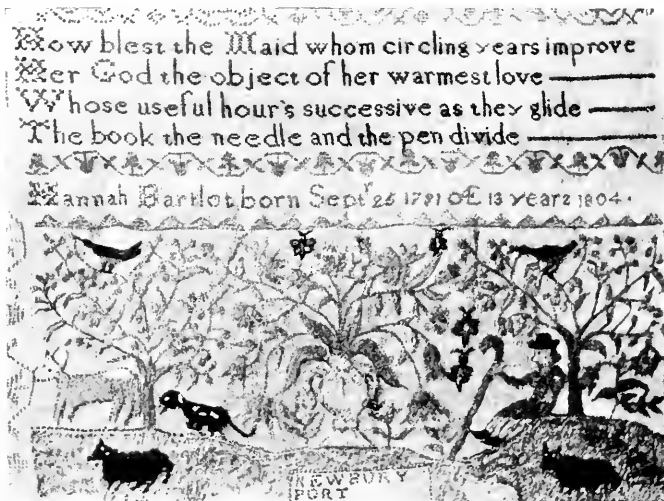 How blest the Maid whom circling years improve
Her God the object of her warmest love
Whose useful hour's successive as they glide
The book the needle and the pen divide
Hannah Bartlet born Septr 25 1791 Æ 13 years 1804.
NEWBURY
PORT